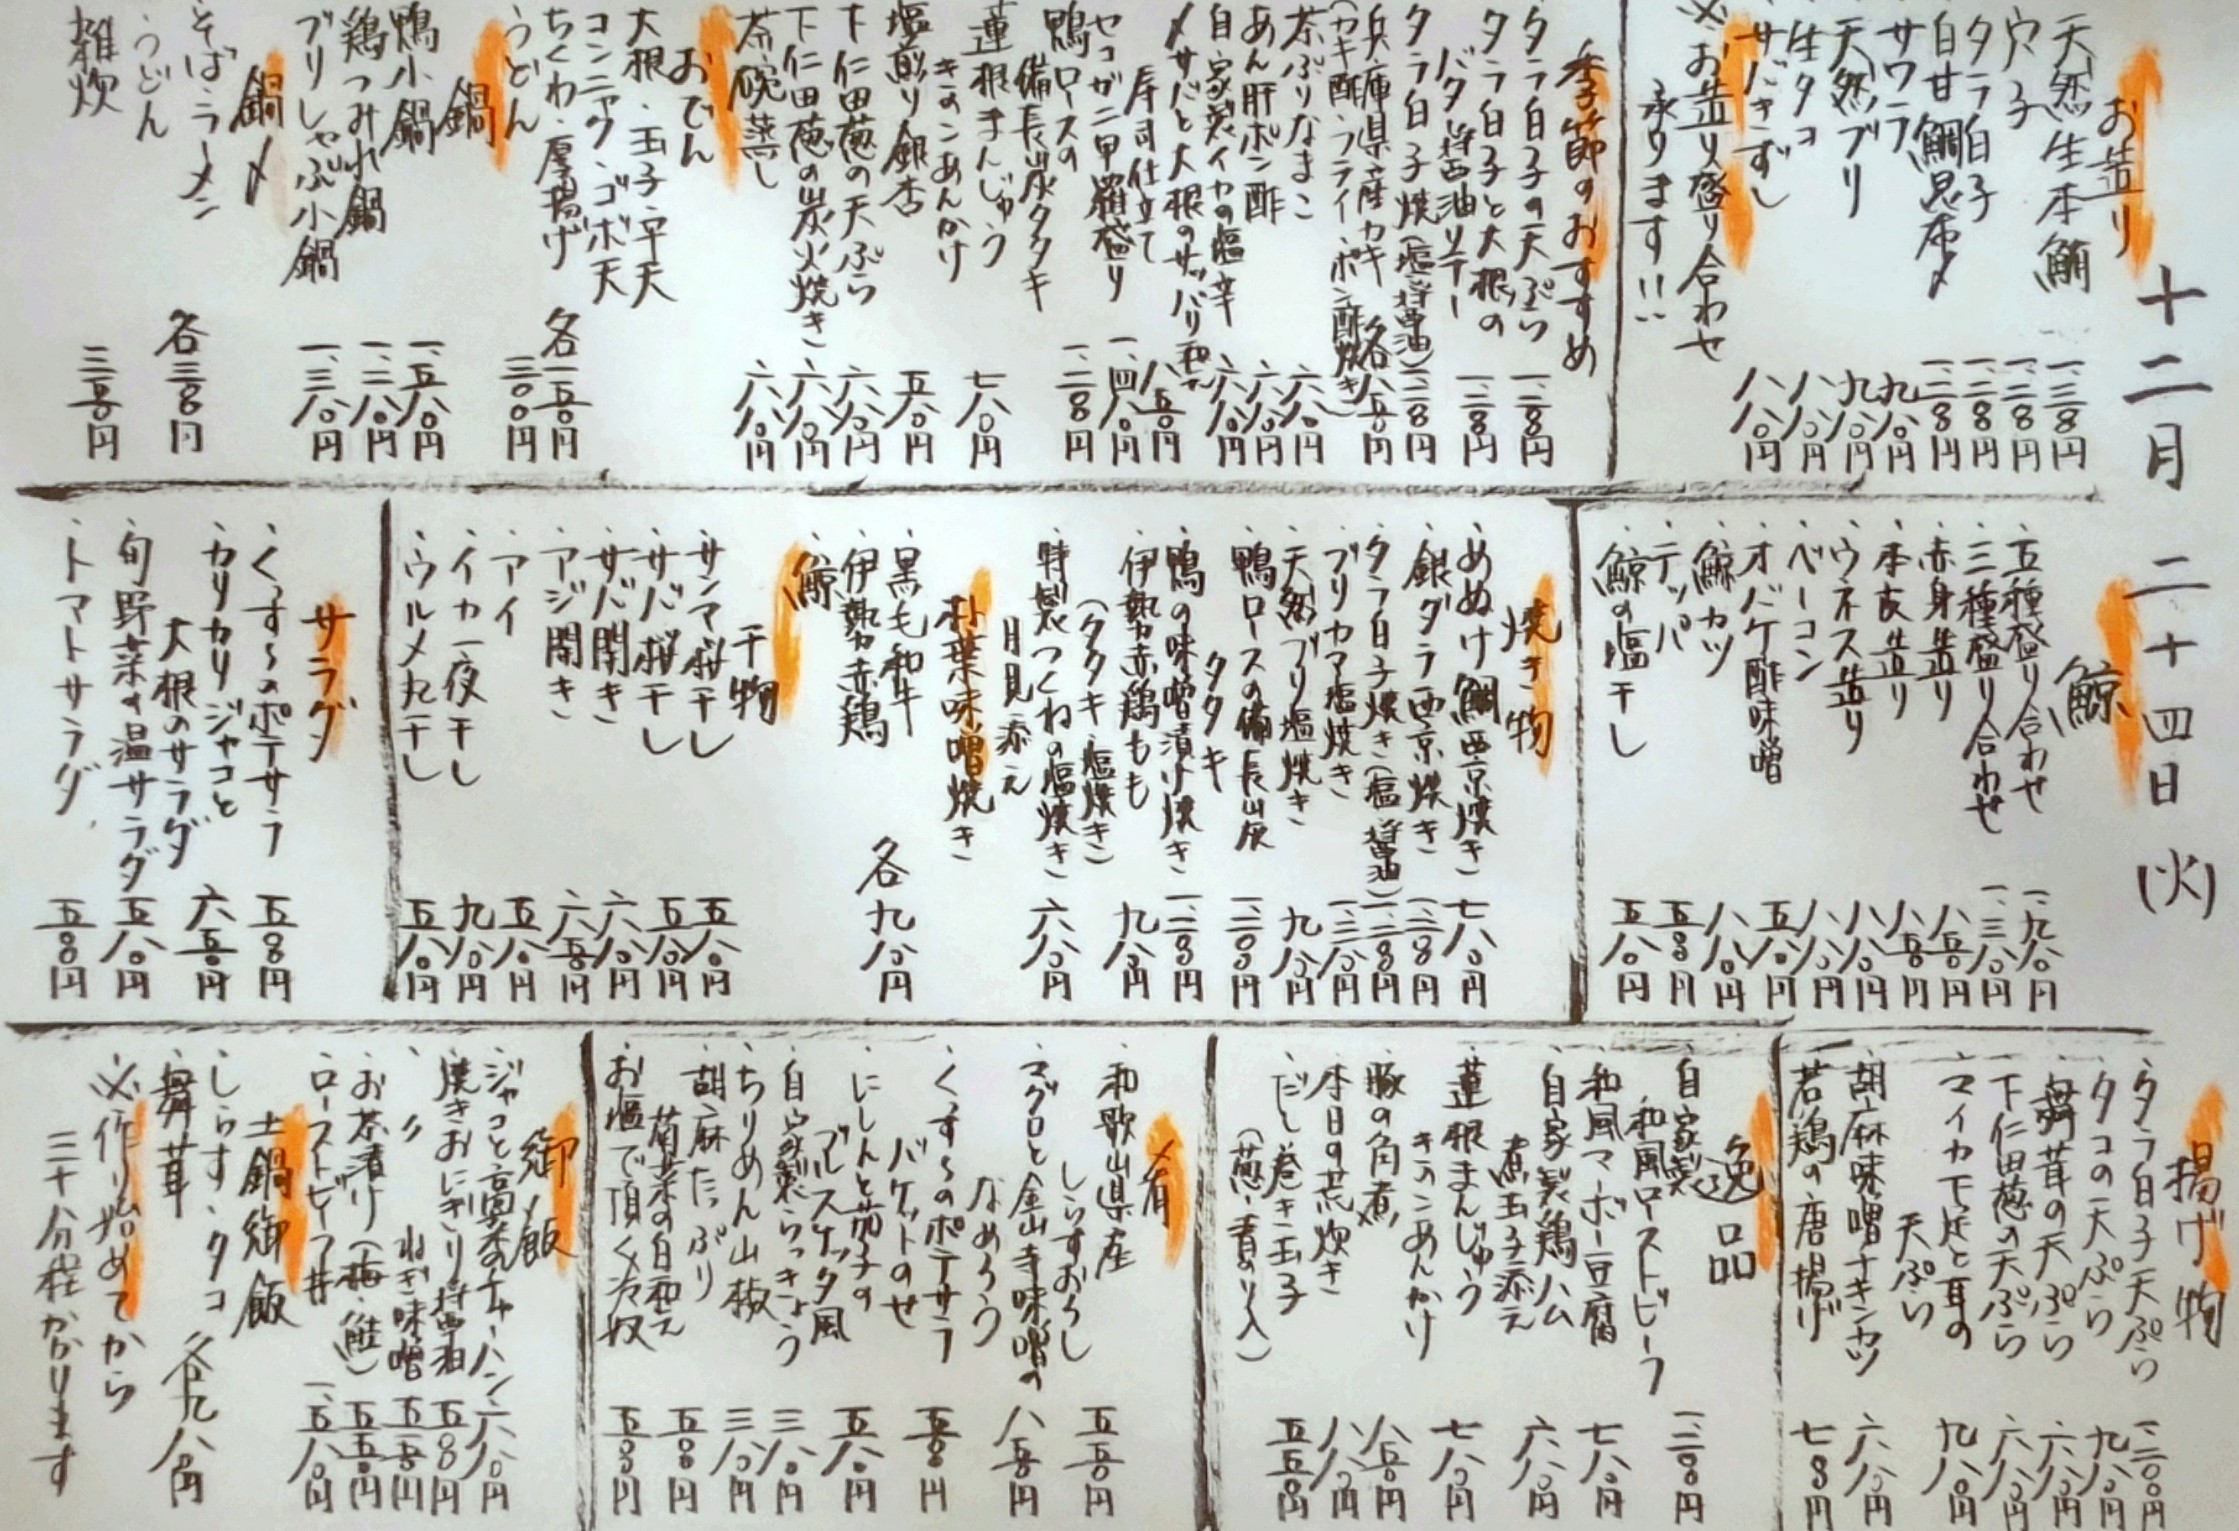 十二月二十四日(火)
お造り
・天然生本鮪
・穴子
・タラ白子
・白甘鯛昆布〆
・サワラ
・天然ブリ
・生タコ
・サバきずし
※お造り盛り合わせ
承ります!!
季節のおすすめ
・タラ白子の天ぷら
・タラ白子と大根の
バター醤油ソテー
・タラ白子焼(塩・醤油)
・兵庫県産カキ
(カキ酢・フライ・ポン酢焼き)
・茶ぶりなまこ
・あん肝ポン酢
・自家製イカの塩辛
・〆サバと大根のサッパリ和え
寿司仕立て
・セコガニ甲羅盛り
・鴨ロースの
備長炭タタキ
・蓮根まんじゅう
きのこあんかけ
・塩煎り銀杏
・下仁田葱の天ぷら
・下仁田葱の炭火焼き
・茶碗蒸し
おでん
・大根・玉子・平天
・コンニャク・ゴボ天
・ちくわ・厚揚げ
各一五〇円
・うどん
三〇〇円
鍋
・鴨小鍋
一、五八〇円
・鶏つみれ鍋
一、二八〇円
・ブリしゃぶ小鍋
一、三八〇円
鍋〆
・そば・ラーメン
・うどん
各三五〇円
・雑炊
三五〇円
鯨
・五種盛り合わせ
一、九八〇円
・三種盛り合わせ
一、三八〇円
・赤身造り
八五〇円
・本皮造り
八五〇円
・ウネス造り
八八〇円
・ベーコン
八八〇円
・オバケ酢味噌
五八〇円
・鯨カツ
八八〇円
・テッパ
五五〇円
・鯨の塩干し
五八〇円
焼き物
・めぬけ鯛西京焼き
・銀ダラ西京焼き
・タラ白子焼き(塩・醤油)
・ブリカマ塩焼き
・天然ブリ塩焼き
・鴨ロースの備長炭
タタキ
・鴨の味噌漬け焼き
・伊勢赤鶏もも
(タタキ・塩焼き)
・特製つくねの塩焼き
月見添え
朴葉味噌焼き
・黒毛和牛
・伊勢赤鶏
・鯨
各九八〇円
干物
・サンマ桜干し
五八〇円
・サバ桜干し
五五〇円
・サバ開き
六八〇円
・アジ開き
六五〇円
・アイ
五八〇円
・イカ一夜干し
九八〇円
・ウルメ丸干し
五八〇円
サラダ
・くす〜のポテサラ
五五〇円
・カリカリジャコと
大根のサラダ
六五〇円
・旬野菜の温サラダ
五八〇円
・トマトサラダ
五五〇円
揚げ物
・タラ白子天ぷら
・タコの天ぷら
九八〇円
・舞茸の天ぷら
六八〇円
・下仁田葱の天ぷら
六八〇円
・マイカ下足と耳の
天ぷら
九八〇円
・胡麻味噌チキンカツ
六八〇円
・若鶏の唐揚げ
七五〇円
逸品
・自家製
和風ローストビーフ
・和風マーボー豆腐
七八〇円
・自家製鶏ハム
煮玉子添え
六八〇円
・蓮根まんじゅう
きのこあんかけ
七八〇円
・豚の角煮
八五〇円
・本日の荒炊き
八八〇円
・だし巻き玉子
(葱・青のり入)
五五〇円
〆肴
・和歌山県産
しらすおろし
五五〇円
・マグロと金山寺味噌の
なめろう
八五〇円
・くす〜のポテサラ
バケットのせ
五五〇円
・にしんと茄子の
ブルスケッタ風
五八〇円
・自家製らっきょう
三八〇円
・ちりめん山椒
三八〇円
・胡麻たっぷり
菊菜の白和え
五五〇円
・お塩で頂く冷奴
五五〇円
御〆飯
・ジャコと高菜のチャーハン
六八〇円
・焼きおにぎり醤油
・〃 ねぎ味噌
・お茶漬け(梅・鮭)
五五〇円
・ローストビーフ丼
一、五八〇円
土鍋御飯
・しらす・タコ
・舞茸
各九八〇円
※作り始めてから
三十分程かかります